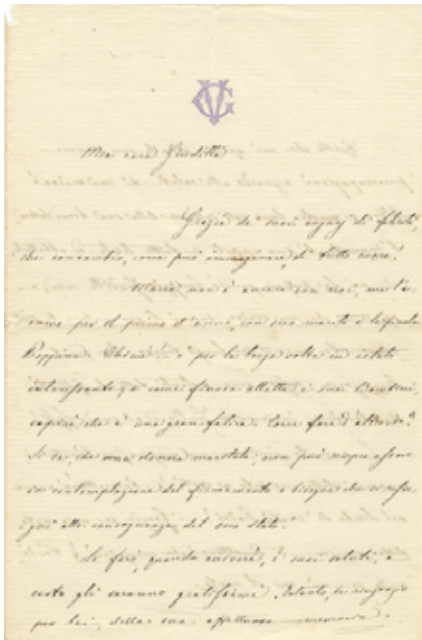 VG
Mia cara Giuditta
Grazie de' suoi augurj di felicità,
che contraccambio, come può immaginare, di tutto cuore.
Maria non è ancora con noi, ma l'a-
per il primo d'anno, con suo marito e
Peppina. è per la terza volta in istato
interessante, e come finora allatta i suoi Bambini,
capirà che è una gran fatica. Come fare d'altronde?
Si sa che una donna maritata, non può sempre essere
in contemplazione del firmamento e bisogna che si
alle conseguenze del suo stato.
Le farò, quando verrà, i suoi saluti, e
gli saranno graditissimi. Intanto, la ringrazio
per lei, della sua affettuosa memoria.